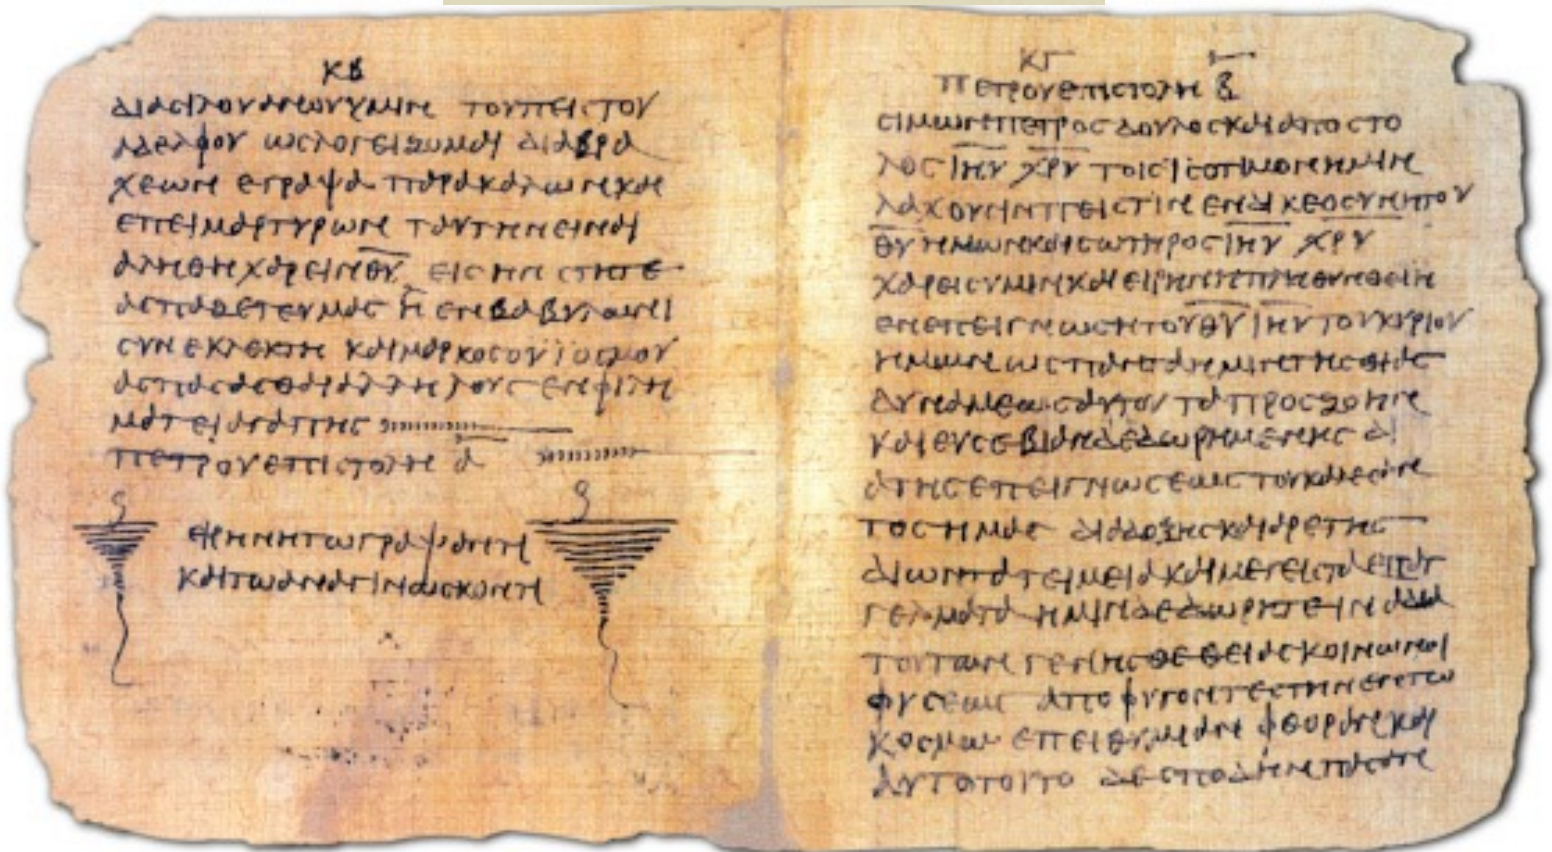 ΚΒ
ΔΙΑ ϹΙΛΟΥΑΝΟΥ ΥΜΙΝ ΤΟΥ ΠΕΙϹΤΟΥ
ΑΔΕΛΦΟΥ ΩϹ ΛΟΓΕΙΖΟΜΑΙ ΔΙΑ ΒΡΑ
ΧΕΩΝ ΕΓΡΑΨΑ ΠΑΡΑΚΑΛΩΝ ΚΑΙ
ΕΠΕΙΜΑΡΤΥΡΩΝ ΤΑΥΤΗΝ ΕΙΝΑΙ
ΑΛΗΘΗ ΧΑΡΕΙΝ ΘΥ ΕΙϹ ΗΝ ϹΤΗΤΕ
ΑϹΠΑΖΕΤΕ ΥΜΑϹ Η ΕΝ ΒΑΒΥΛΩΝΙ
ϹΥΝΕΚΛΕΚΤΗ ΚΑΙ ΜΑΡΚΟϹ Ο ΥΙΟϹ ΜΟΥ
ΑϹΠΑϹΑϹΘΑΙ ΑΛΛΗΛΟΥϹ ΕΝ ΦΙΛΗ
ΜΑΤΕΙ ΑΓΑΠΗϹ
ΠΕΤΡΟΥ ΕΠΙϹΤΟΛΗ Α
ΕΙΡΗΝΗ ΤΩ ΓΡΑΨΑΝΤΙ
ΚΑΙ ΤΩ ΑΝΑΓΙΝΩϹΚΟΝΤΙ
ΚΓ
ΠΕΤΡΟΥ ΕΠΙϹΤΟΛΗ Β
ϹΙΜΩΝ ΠΕΤΡΟϹ ΔΟΥΛΟϹ ΚΑΙ ΑΠΟϹΤΟ
ΛΟϹ ΙΗΥ ΧΡΥ ΤΟΙϹ ΙϹΟΤΙΜΟΝ ΗΜΙΝ
ΛΑΧΟΥϹΙΝ ΠΕΙϹΤΙΝ ΕΝ ΔΙΚΕΟϹΥΝΗ ΤΟΥ
ΘΥ ΗΜΩΝ ΚΑΙ ϹΩΤΗΡΟϹ ΙΗΥ ΧΡΥ
ΧΑΡΕΙϹ ΥΜΙΝ ΚΑΙ ΕΙΡΗΝΗ ΠΛΗΘΥΝΘΕΙΗ
ΕΝ ΕΠΕΙΓΝΩϹΗ ΤΟΥ ΘΥ ΙΗΥ ΤΟΥ ΚΥΡΙΟΥ
ΗΜΩΝ ΩϹ ΠΑΝΤΑ ΗΜΙΝ ΤΗϹ ΘΙΑϹ
ΔΥΝΑΜΕΩϹ ΑΥΤΟΥ ΤΑ ΠΡΟϹ ΖΟΗΝ
ΚΑΙ ΕΥϹΕΒΙΑΝ ΔΕΔΩΡΗΜΕΝΗϹ ΔΙ
Α ΤΗϹ ΕΠΕΙΓΝΩϹΕΩϹ ΤΟΥ ΚΑΛΕϹΑΝ
ΤΟϹ ΗΜΑϹ ΔΙΑ ΔΟΞΗϹ ΚΑΙ ΑΡΕΤΗϹ
ΔΙ ΩΝ ΤΑ ΤΕΙΜΕΙΑ ΚΑΙ ΜΕΓΕΙϹΤΑ ΕΠΑΓ
ΓΕΛΜΑΤΑ ΗΜΙΝ ΔΕΔΩΡΗΤΕ ΙΝΑ ΔΙΑ
ΤΟΥΤΩΝ ΓΕΝΗϹΘΕ ΘΕΙΑϹ ΚΟΙΝΩΝΟΙ
ΦΥϹΕΩϹ ΑΠΟΦΥΓΟΝΤΕϹ ΤΗΝ ΕΝ ΤΩ
ΚΟϹΜΩ ΕΠΕΙΘΥΜΙΑΝ ΦΘΟΡΑΝ ΚΑΙ
ΑΥΤΟ ΤΟΥΤΟ ΔΕ ϹΠΟΔΗΝ ΠΑϹΑΝ